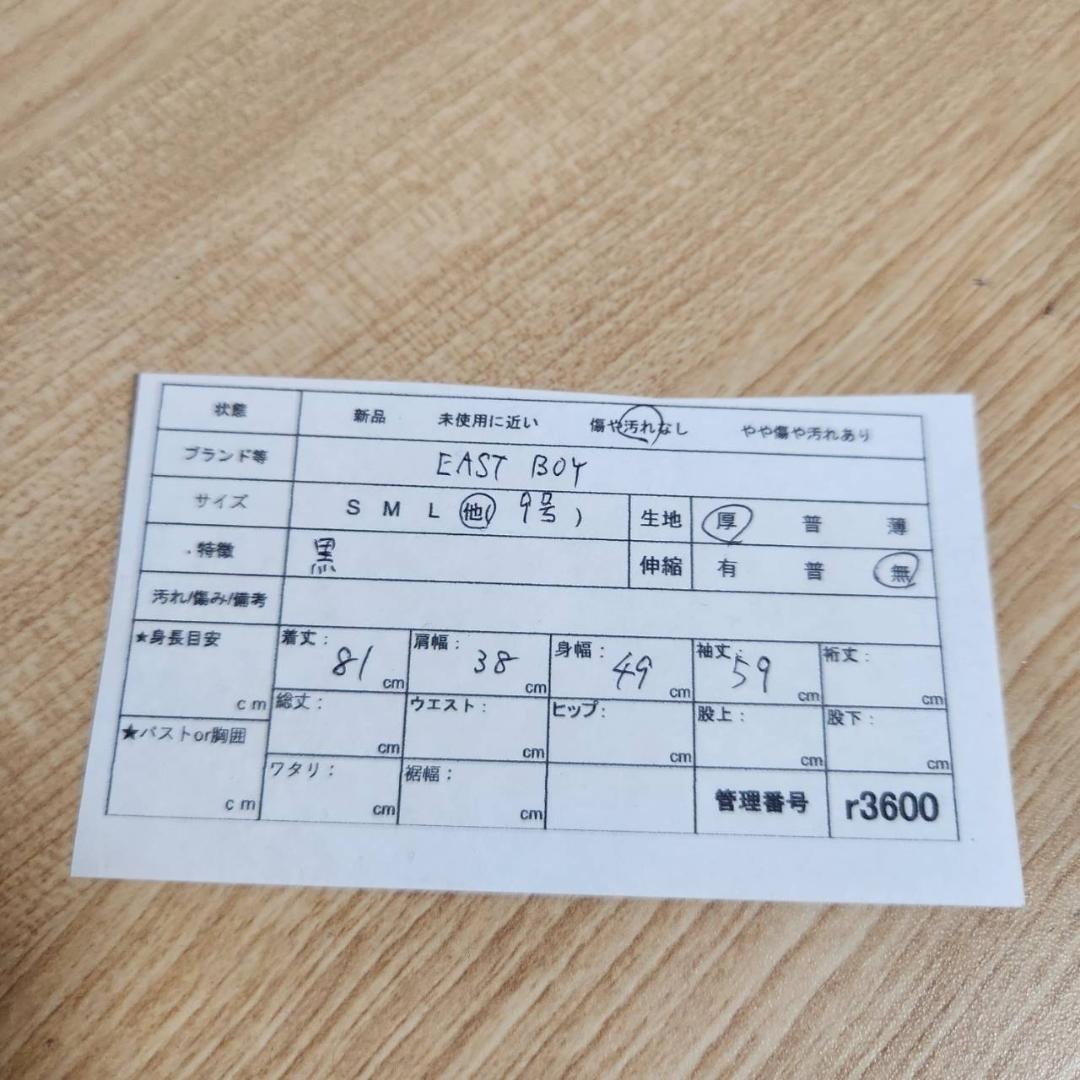 状態 新品 未使用に近い 傷や汚れなし やや傷や汚れあり
ブランド等 EAST BOY
サイズ S M L 他( 9号 ) 生地 厚 普 薄
.特徴 黒 伸縮 有 普 無
汚れ/傷み/備考
★身長目安 cm 着丈: 81 cm 肩幅: 38 cm 身幅: 49 cm 袖丈: 59 cm 裄丈: cm
総丈: cm ウエスト: cm ヒップ: cm 股上: cm 股下: cm
★バストor胸囲 cm ワタリ: cm 裾幅: cm 管理番号 r3600